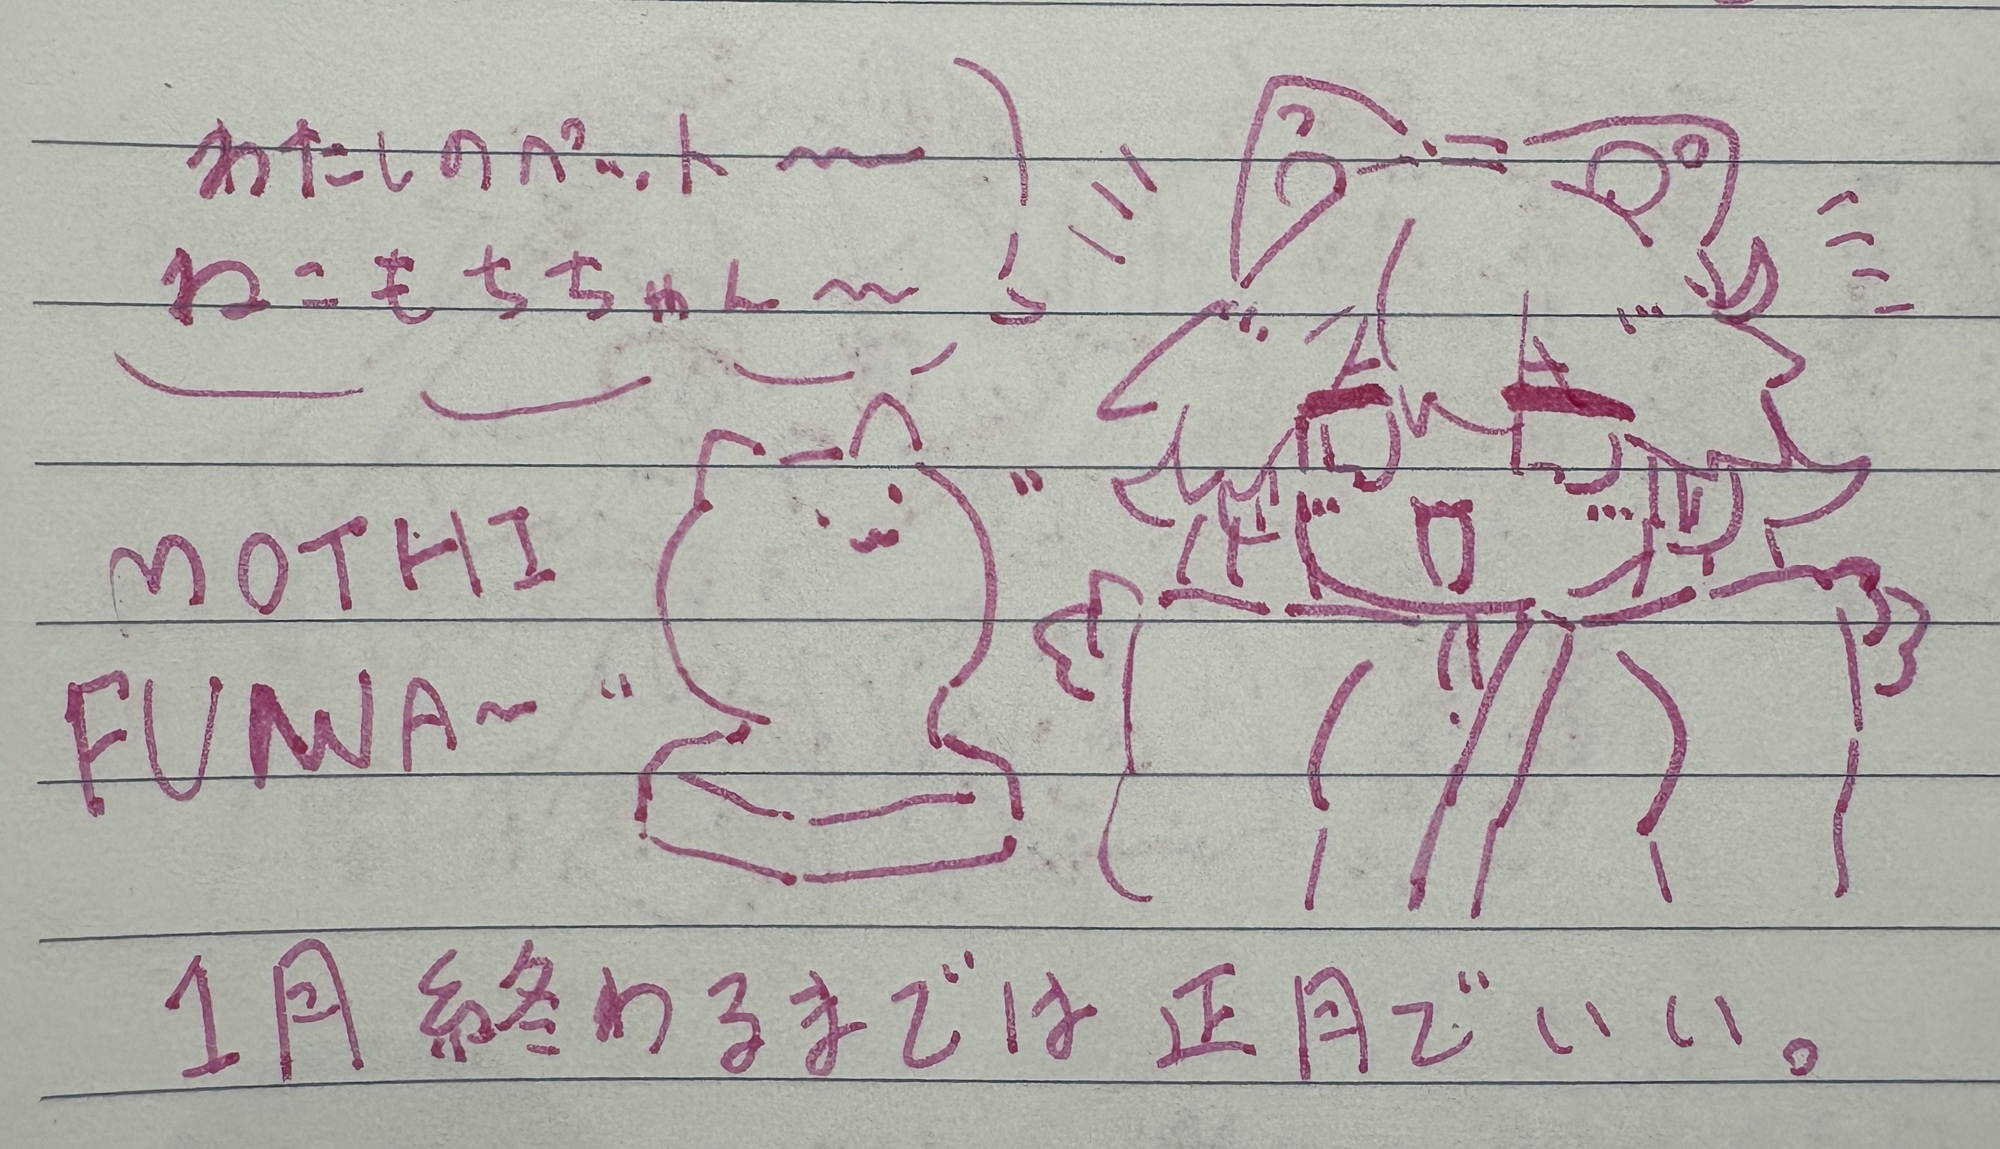 わたしのペット〜
ねこもちちゃん〜
MOTHI
FUWA~
1月終わるまでは正月でいい。